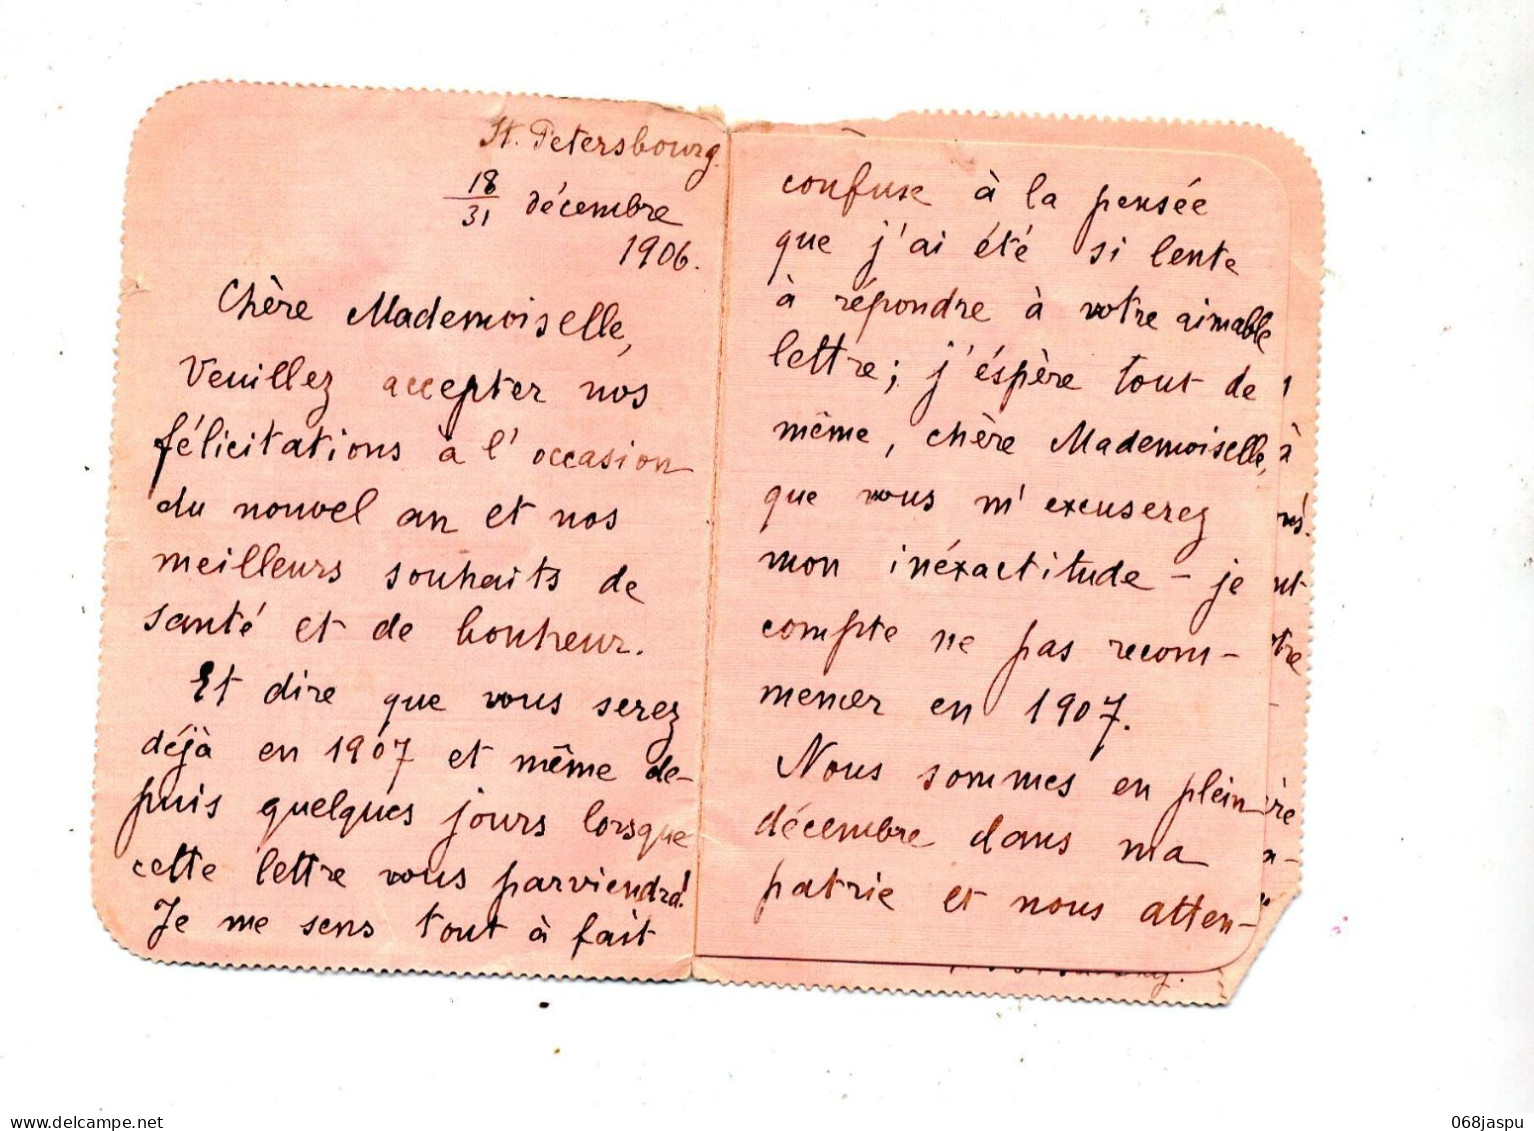 St. Petersbourg.
18/31 décembre
1906.
Chère Mademoiselle,
Veuillez accepter nos
félicitations à l'occasion
du nouvel an et nos
meilleurs souhaits de
santé et de bonheur.
Et dire que vous serez
déjà en 1907 et même de-
puis quelques jours lorsque
cette lettre vous parviendra!
Je me sens tout à fait
confuse à la pensée
que j'ai été si lente
à répondre à votre aimable
lettre; j'éspère tout de
même, chère Mademoiselle,
que vous m'excuserez
mon inéxactitude – je
compte ne pas recom-
mencer en 1907.
Nous sommes en plein
décembre dans ma
patrie et nous atten-
à
068jaspu
www.delcampe.net